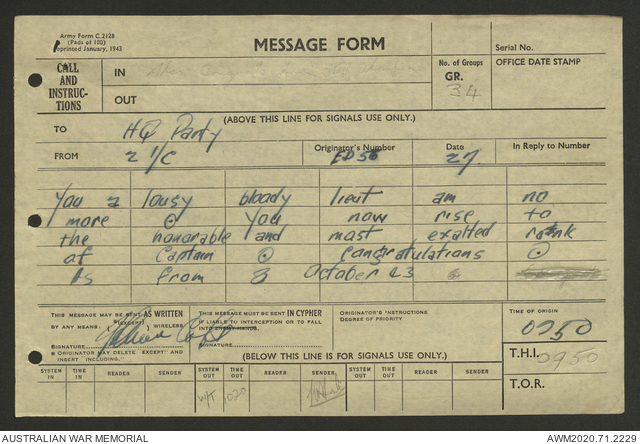 Army Form C.2128
(Pads of 100)
Reprinted January, 1943
MESSAGE FORM
Serial No.
CALL
AND
INSTRUC-
TIONS
IN
OUT
No. of Groups
GR.
34
OFFICE DATE STAMP
(ABOVE THIS LINE FOR SIGNALS USE ONLY.)
TO HQ Party
FROM 2 I/C
Originator's Number
ED56
Date
27.
In Reply to Number
You a lousy bloody lieut am no
more ⊙ You now rise to
the honorable and most exalted rank
of Captain ⊙ Congratulations ⊙
As from 8 October 43
THIS MESSAGE MAY BE SENT AS WRITTEN
BY ANY MEANS. (EXCEPT) WIRELESS.
SIGNATURE
* ORIGINATOR MAY DELETE EXCEPT AND
INSERT INCLUDING.
THIS MESSAGE MUST BE SENT IN CYPHER
IF LIABLE TO INTERCEPTION OR TO FALL
INTO ENEMY HANDS.
SIGNATURE
ORIGINATOR'S INSTRUCTIONS
DEGREE OF PRIORITY
TIME OF ORIGIN
0750
(BELOW THIS LINE IS FOR SIGNALS USE ONLY.)
T.H.I. 0950
T.O.R.
SYSTEM IN
TIME IN
READER
SENDER
SYSTEM OUT
TIME OUT
READER
SENDER
SYSTEM OUT
TIME OUT
READER
SENDER
W/T 1020
AUSTRALIAN WAR MEMORIAL
AWM2020.71.2229